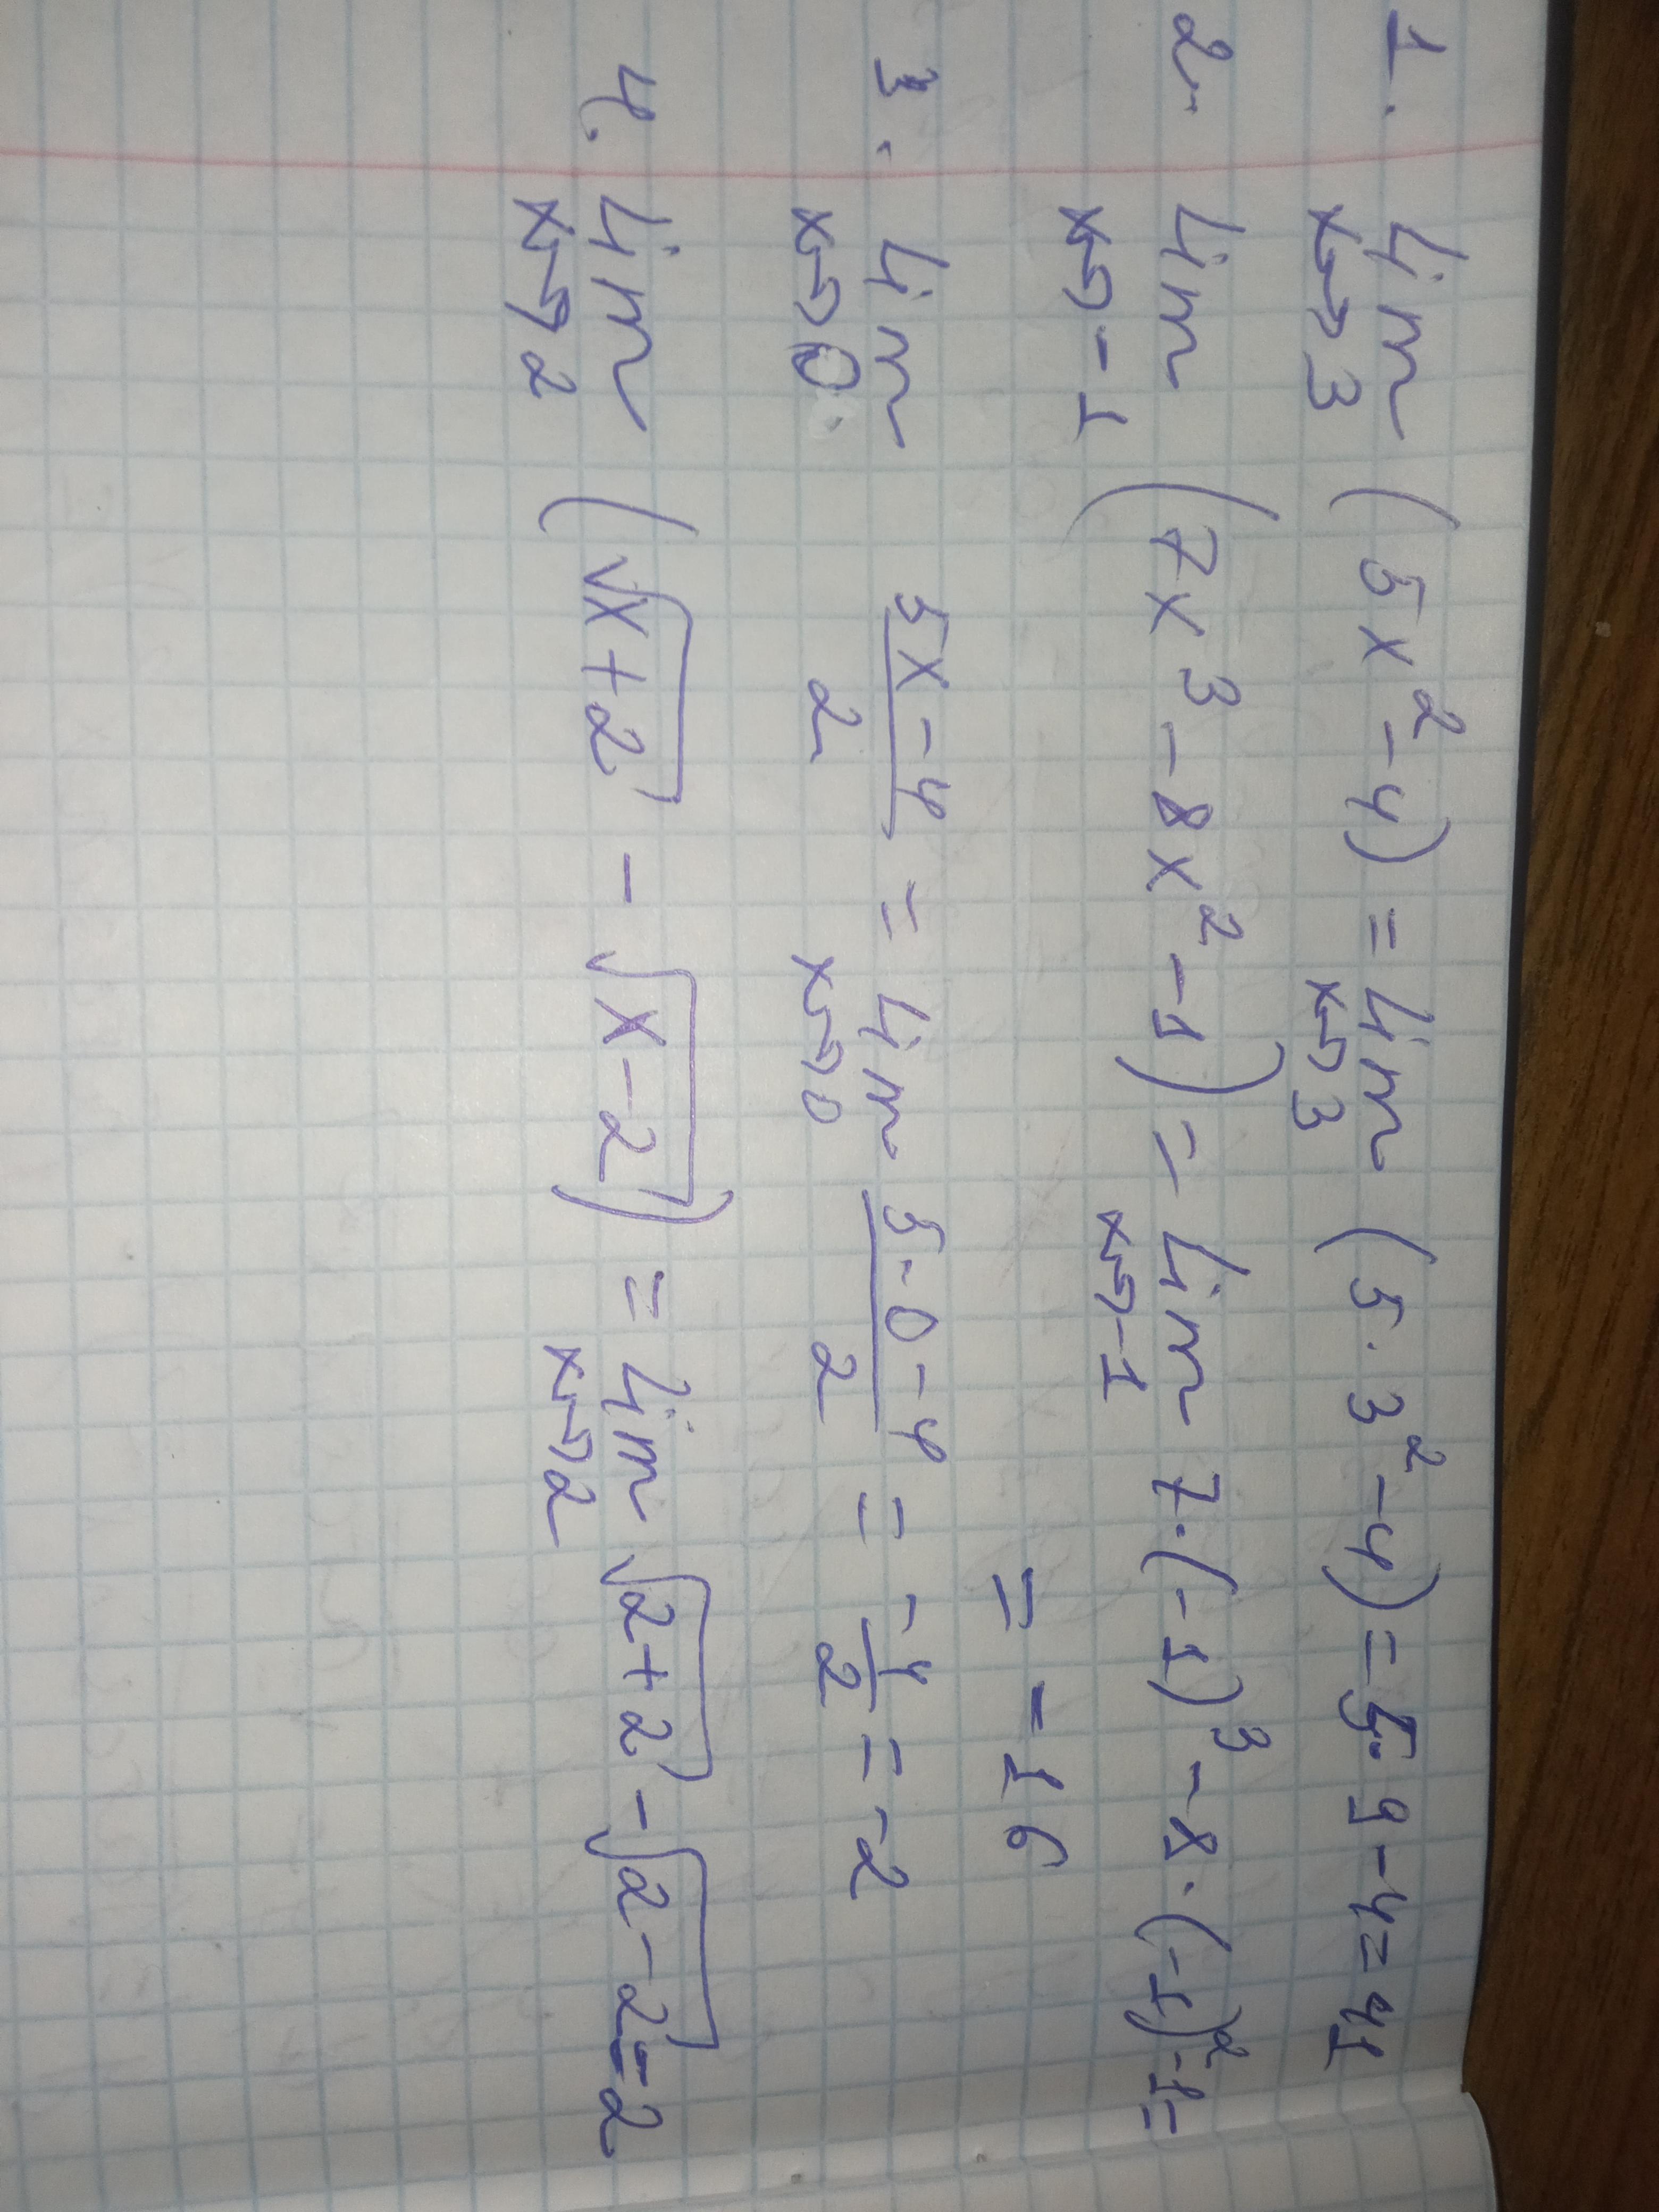 1. lim x→3 (5x² - 4) = lim x→3 (5 · 3² - 4) = 5 · 9 - 4 = 41
2. lim x→-1 (7x³ - 8x² - 1) = lim x→-1 7 · (-1)³ - 8 · (-1)² - 1 =
= -16
3. lim x→0 (5x - 4)/2 = lim x→0 (5 · 0 - 4)/2 = -4/2 = -2
4. lim x→2 (√(x+2) - √(x-2)) = lim x→2 √(2+2) - √(2-2) = 2